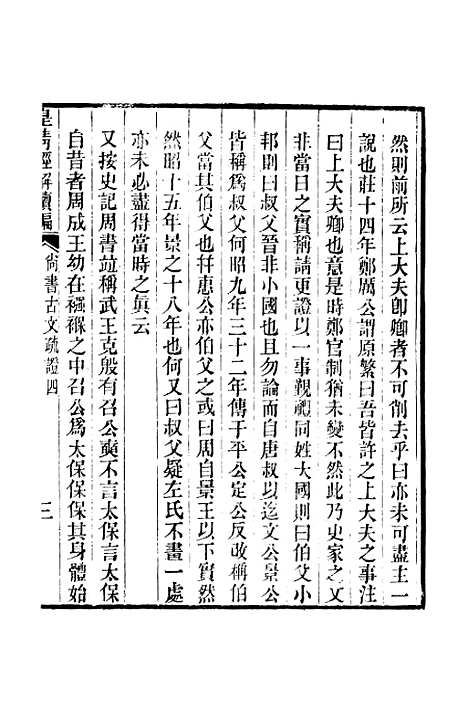 然則前所云上大夫卽卿者不可削去乎曰亦未可盡主一
說也莊十四年鄭厲公謂原繁曰吾皆許之上大夫之事注
曰上大夫卿也意是時鄭官制猶未變不然此乃史家之文
非當日之實稱請更證以一事覲禮同姓大國則曰伯父小
邦則曰叔父晉非小國也且勿論而自唐叔以迄文公景公
皆稱爲叔父何昭九年三十二年傳于平公定公反改稱伯
父當其伯父也幷惠公亦伯父之或曰周自景王以下實然
然昭十五年景之十八年也何又曰叔父疑左氏不畫一處
亦未必盡得當時之眞云
又按史記周書竝稱武王克殷有召公奭不言太保言太保
自昔者周成王幼在襁褓之中召公爲太保保保其身體始
皇清經解續編
尚書古文疏證四
三